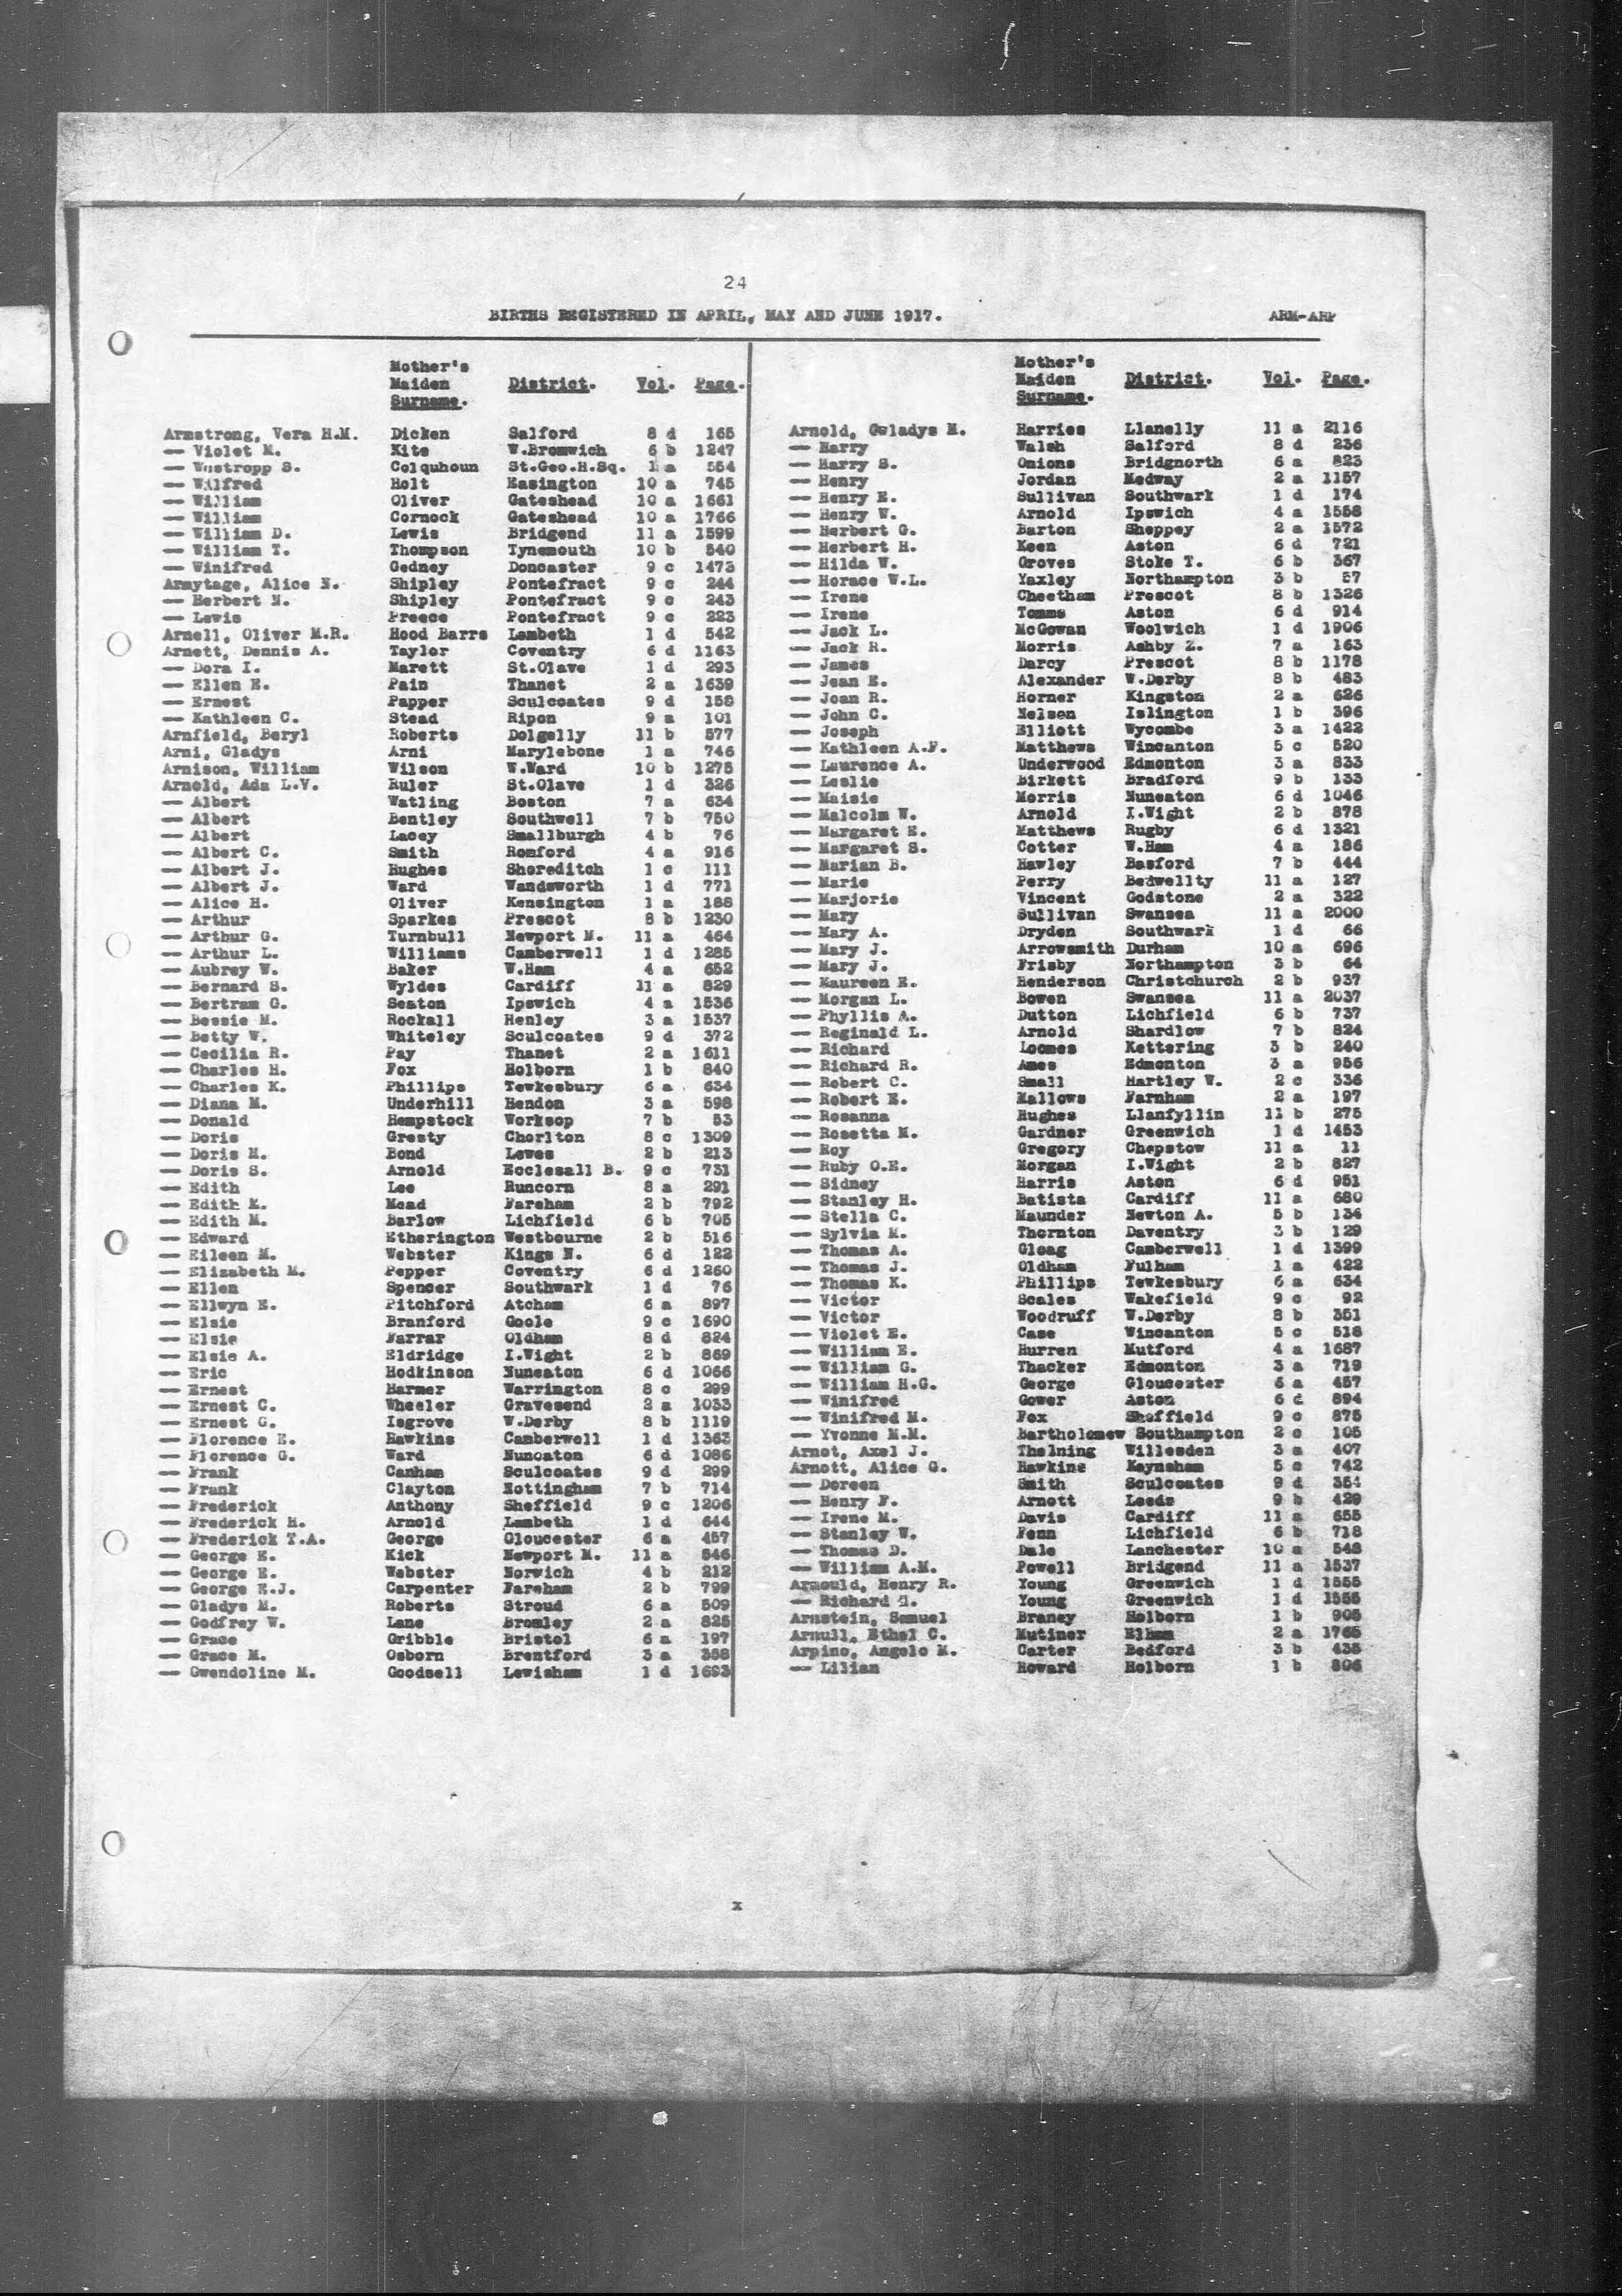 24
BIRTHS REGISTERED IN APRIL, MAY AND JUNE 1917.
ARM-ARP
Mother's
Maiden District. Vol. Page.
Surname.
Armstrong, Vera H.M. Dicken Salford 8 d 165
— Violet M. Kite W.Bromwich 6 b 1247
— Westropp S. Colquhoun St.Geo.H.Sq. 1 a 554
— Wilfred Holt Easington 10 a 745
— William Oliver Gateshead 10 a 1661
— William Cornock Gateshead 10 a 1766
— William D. Lewis Bridgend 11 a 1599
— William T. Thompson Tynemouth 10 b 540
— Winifred Gedney Doncaster 9 c 1473
Armytage, Alice N. Shipley Pontefract 9 c 244
— Herbert N. Shipley Pontefract 9 c 243
— Lewis Preece Pontefract 9 c 223
Arnell, Oliver M.R. Hood Barrs Lambeth 1 d 542
Arnett, Dennis A. Taylor Coventry 6 d 1163
— Dora I. Marett St.Olave 1 d 293
— Ellen E. Pain Thanet 2 a 1639
— Ernest Papper Sculcoates 9 d 158
— Kathleen C. Stead Ripon 9 a 101
Arnfield, Beryl Roberts Dolgelly 11 b 577
Arni, Gladys Arni Marylebone 1 a 746
Arnison, William Wilson W.Ward 10 b 1275
Arnold, Ada L.V. Ruler St.Olave 1 d 326
— Albert Watling Boston 7 a 634
— Albert Bentley Southwell 7 b 750
— Albert Lacey Smallburgh 4 b 76
— Albert C. Smith Romford 4 a 916
— Albert J. Hughes Shoreditch 1 c 111
— Albert J. Ward Wandsworth 1 d 771
— Alice H. Oliver Kensington 1 a 188
— Arthur Sparkes Prescot 8 b 1230
— Arthur G. Turnbull Newport M. 11 a 464
— Arthur L. Williams Camberwell 1 d 1285
— Aubrey W. Baker W.Ham 4 a 652
— Bernard S. Wyldes Cardiff 11 a 829
— Bertram G. Seaton Ipswich 4 a 1536
— Bessie M. Rockall Henley 3 a 1537
— Betty W. Whiteley Sculcoates 9 d 372
— Cecilia R. Pay Thanet 2 a 1611
— Charles H. Fox Holborn 1 b 840
— Charles K. Phillips Tewkesbury 6 a 634
— Diana M. Underhill Hendon 3 a 598
— Donald Hempstock Worksop 7 b 53
— Doris Gresty Chorlton 8 c 1309
— Doris M. Bond Lewes 2 b 213
— Doris S. Arnold Ecclesall B. 9 c 731
— Edith Lee Runcorn 8 a 291
— Edith K. Mead Fareham 2 b 792
— Edith M. Barlow Lichfield 6 b 705
— Edward Etherington Westbourne 2 b 516
— Eileen M. Webster Kings N. 6 d 122
— Elizabeth M. Pepper Coventry 6 d 1260
— Ellen Spencer Southwark 1 d 76
— Ellwyn E. Pitchford Atcham 6 a 897
— Elsie Branford Goole 9 c 1690
— Elsie Farrar Oldham 8 d 824
— Elsie A. Eldridge I.Wight 2 b 869
— Eric Hodkinson Nuneaton 6 d 1066
— Ernest Harmer Warrington 8 c 299
— Ernest C. Wheeler Gravesend 2 a 1033
— Ernest G. Isgrove W.Derby 8 b 1119
— Florence E. Hawkins Camberwell 1 d 1363
— Florence G. Ward Nuneaton 6 d 1086
— Frank Canham Sculcoates 9 d 299
— Frank Clayton Nottingham 7 b 714
— Frederick Anthony Sheffield 9 c 1206
— Frederick H. Arnold Lambeth 1 d 644
— Frederick T.A. George Gloucester 6 a 457
— George E. Kick Newport M. 11 a 546
— George E. Webster Norwich 4 b 212
— George E.J. Carpenter Fareham 2 b 799
— Gladys M. Roberts Stroud 6 a 509
— Godfrey W. Lane Bromley 2 a 825
— Grace Gribble Bristol 6 a 197
— Grace M. Osborn Brentford 3 a 358
— Gwendoline M. Goodsell Lewisham 1 d 1693
Mother's
Maiden District. Vol. Page.
Surname.
Arnold, Gwladys M. Harries Llanelly 11 a 2116
— Harry Walsh Salford 8 d 236
— Harry S. Onions Bridgnorth 6 a 823
— Henry Jordan Medway 2 a 1157
— Henry E. Sullivan Southwark 1 d 174
— Henry W. Arnold Ipswich 4 a 1558
— Herbert G. Barton Sheppey 2 a 1572
— Herbert H. Keen Aston 6 d 721
— Hilda W. Groves Stoke T. 6 b 367
— Horace W.L. Yaxley Northampton 3 b 57
— Irene Cheetham Prescot 8 b 1326
— Irene Tomms Aston 6 d 914
— Jack L. McGowan Woolwich 1 d 1906
— Jack R. Morris Ashby Z. 7 a 163
— James Darcy Prescot 8 b 1178
— Jean E. Alexander W.Derby 8 b 483
— Joan R. Horner Kingston 2 a 626
— John C. Nelson Islington 1 b 396
— Joseph Elliott Wycombe 3 a 1422
— Kathleen A.F. Matthews Wincanton 5 c 520
— Laurence A. Underwood Edmonton 3 a 833
— Leslie Birkett Bradford 9 b 133
— Maisie Morris Nuneaton 6 d 1046
— Malcolm W. Arnold I.Wight 2 b 878
— Margaret E. Matthews Rugby 6 d 1321
— Margaret S. Cotter W.Ham 4 a 186
— Marian B. Hawley Basford 7 b 444
— Marie Perry Bedwellty 11 a 127
— Marjorie Vincent Godstone 2 a 322
— Mary Sullivan Swansea 11 a 2000
— Mary A. Dryden Southwark 1 d 66
— Mary J. Arrowsmith Durham 10 a 696
— Mary J. Frisby Northampton 3 b 64
— Maureen E. Henderson Christchurch 2 b 937
— Morgan L. Bowen Swansea 11 a 2037
— Phyllis A. Dutton Lichfield 6 b 737
— Reginald L. Arnold Shardlow 7 b 824
— Richard Loomes Kettering 3 b 240
— Richard R. Ames Edmonton 3 a 956
— Robert C. Small Hartley W. 2 c 336
— Robert E. Mallows Farnham 2 a 197
— Rosanna Hughes Llanfyllin 11 b 275
— Rosetta M. Gardner Greenwich 1 d 1453
— Roy Gregory Chepstow 11 a 11
— Ruby O.E. Morgan I.Wight 2 b 827
— Sidney Harris Aston 6 d 951
— Stanley H. Batista Cardiff 11 a 680
— Stella C. Maunder Newton A. 5 b 134
— Sylvia M. Thornton Daventry 3 b 129
— Thomas A. Gloag Camberwell 1 d 1399
— Thomas J. Oldham Fulham 1 a 422
— Thomas K. Phillips Tewkesbury 6 a 634
— Victor Scales Wakefield 9 c 92
— Victor Woodruff W.Derby 8 b 351
— Violet E. Case Wincanton 5 c 518
— William E. Hurren Mutford 4 a 1687
— William G. Thacker Edmonton 3 a 719
— William H.G. George Gloucester 6 a 457
— Winifred Gower Aston 6 d 894
— Winifred M. Fox Sheffield 9 c 875
— Yvonne M.M. Bartholomew Southampton 2 c 105
Arnot, Axel J. Thelning Willesden 3 a 407
Arnott, Alice G. Hawkins Keynsham 5 c 742
— Doreen Smith Sculcoates 9 d 354
— Henry F. Arnott Leeds 9 b 429
— Irene M. Davis Cardiff 11 a 655
— Stanley W. Fenn Lichfield 6 b 718
— Thomas D. Dale Lanchester 10 a 548
— William A.M. Powell Bridgend 11 a 1537
Arnould, Henry R. Young Greenwich 1 d 1555
— Richard H. Young Greenwich 1 d 1555
Arnstein, Samuel Braney Holborn 1 b 905
Arnull, Ethel C. Mutimer Elham 2 a 1765
Arpino, Angelo M. Carter Bedford 3 b 435
— Lilian Howard Holborn 1 b 806
x